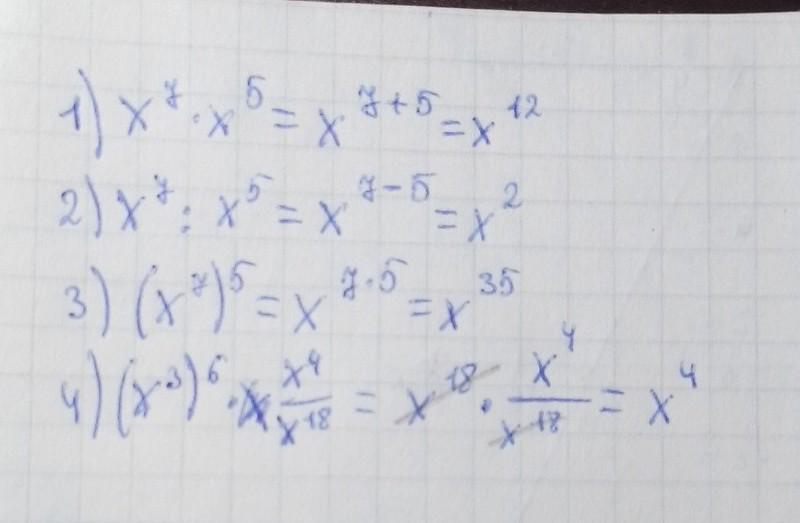 1) x⁷ · x⁵ = x⁷⁺⁵ = x¹²
2) x⁷ : x⁵ = x⁷⁻⁵ = x²
3) (x⁷)⁵ = x⁷·⁵ = x³⁵
4) (x³)⁶ · x⁴/x¹⁸ = x¹⁸ · x⁴/x¹⁸ = x⁴